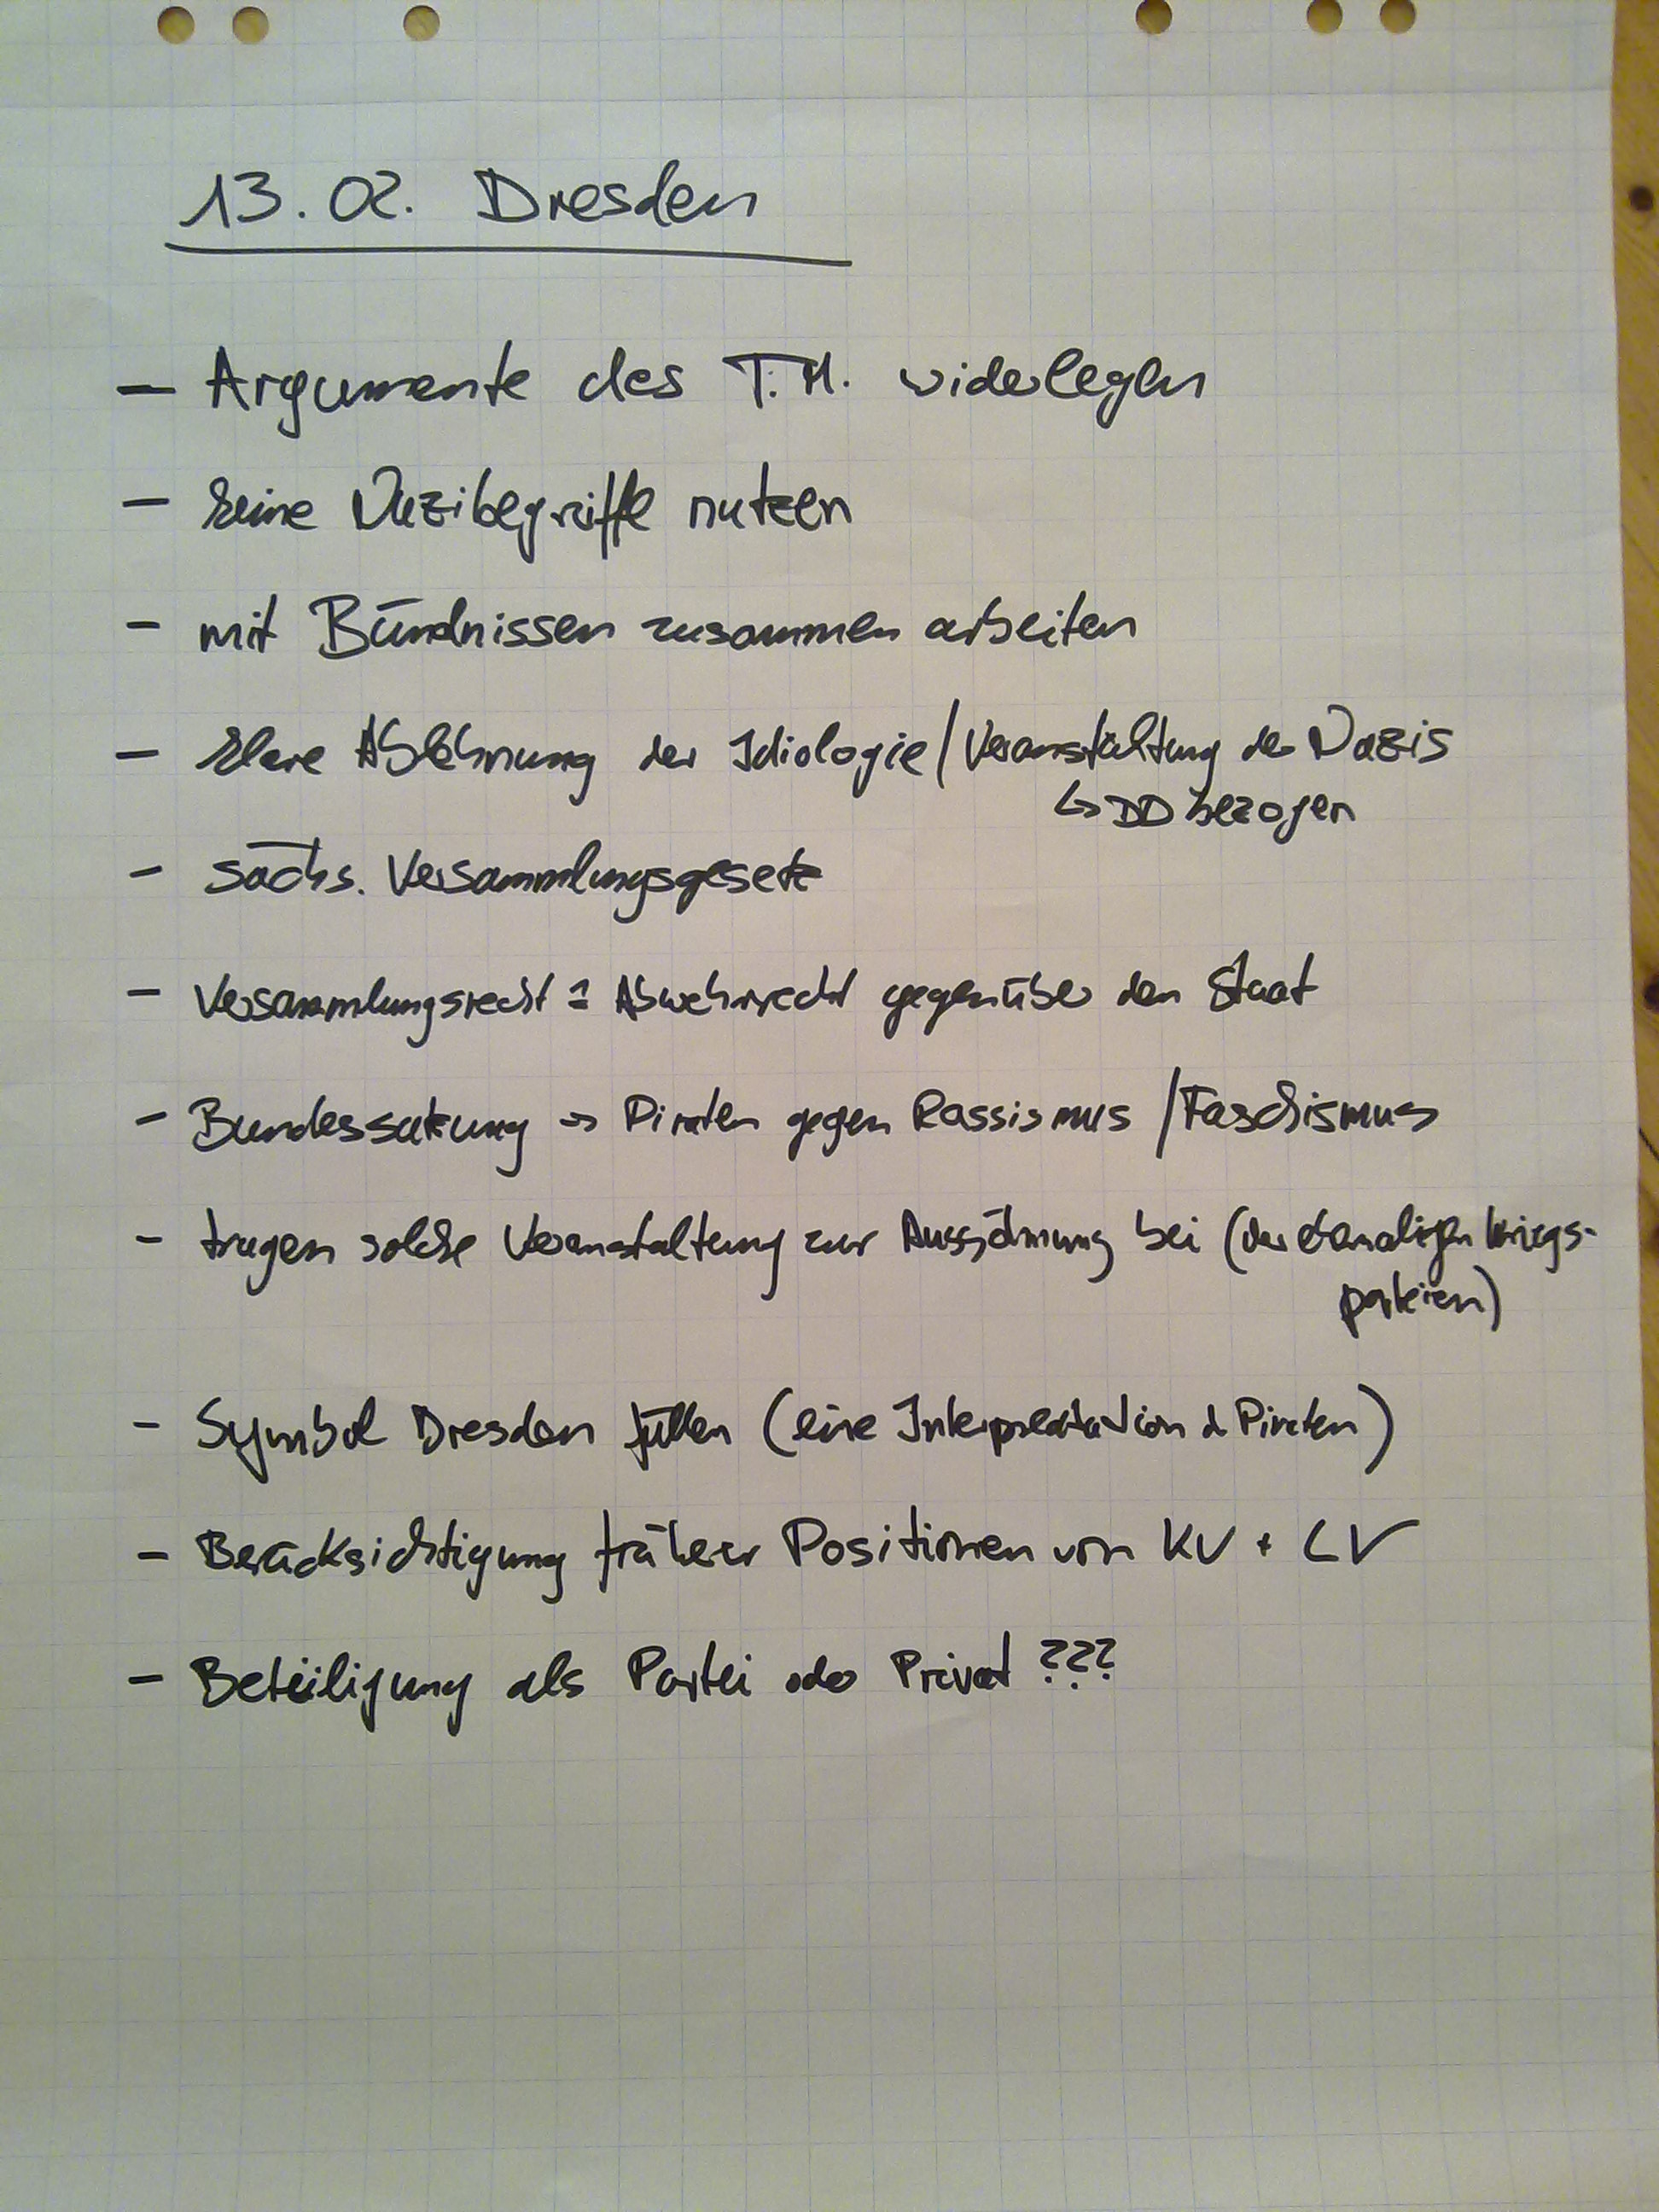 13.02. Dresden
– Argumente des T.M. widerlegen
– keine Nazibegriffe nutzen
– mit Bündnissen zusammen arbeiten
– klare Ablehnung der Idiologie/Veranstaltung der Nazis
↳ DD bezogen
– sächs. Versammlungsgesetz
– Versammlungsrecht = Abwehrrecht gegenüber den Staat
– Bundessatzung → Piraten gegen Rassismus / Faschismus
– tragen solche Veranstaltung zur Aussöhnung bei (der damaligen Kriegs-
parteien)
– Symbol Dresden füllen (eine Interpretation d. Piraten)
– Berücksichtigung früherer Positionen von KV + LV
– Beteiligung als Partei oder Privat ???